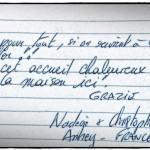 pour tout, si on revient à
cet accueil chaleureux
la maison ici.
GRAZIE
Nadège & Christophe
Annecy - FRANCE